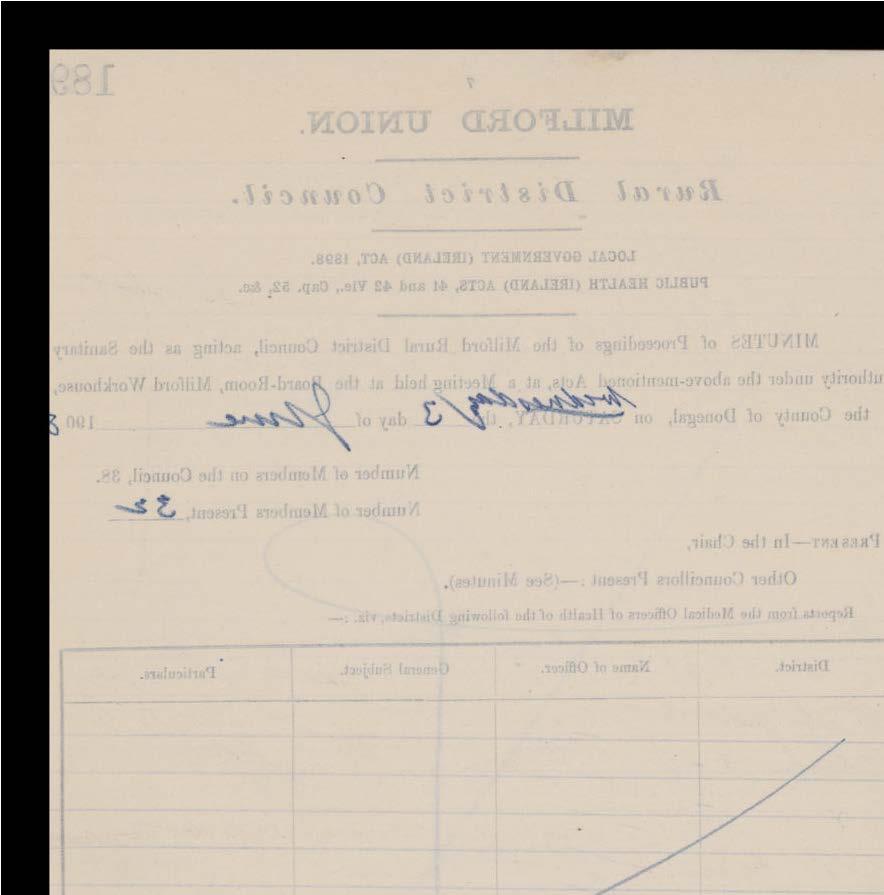 189
7
MILFORD UNION.
Rural District Council.
LOCAL GOVERNMENT (IRELAND) ACT, 1898.
PUBLIC HEALTH (IRELAND) ACTS, 41 and 42 Vic., Cap. 52, &c.
MINUTES of Proceedings of the Milford Rural District Council, acting as the Sanitary
uthority under the above-mentioned Acts, at a Meeting held at the Board-Room, Milford Workhouse,
the County of Donegal, on SATURDAY, Wednesday the 3 day of June 190
Number of Members on the Council, 38.
Number of Members Present, 32
PRESENT—In the Chair,
Other Councillors Present :—(See Minutes).
Reports from the Medical Officers of Health of the following Districts, viz. :—
District. Name of Officer. General Subject. Particulars.